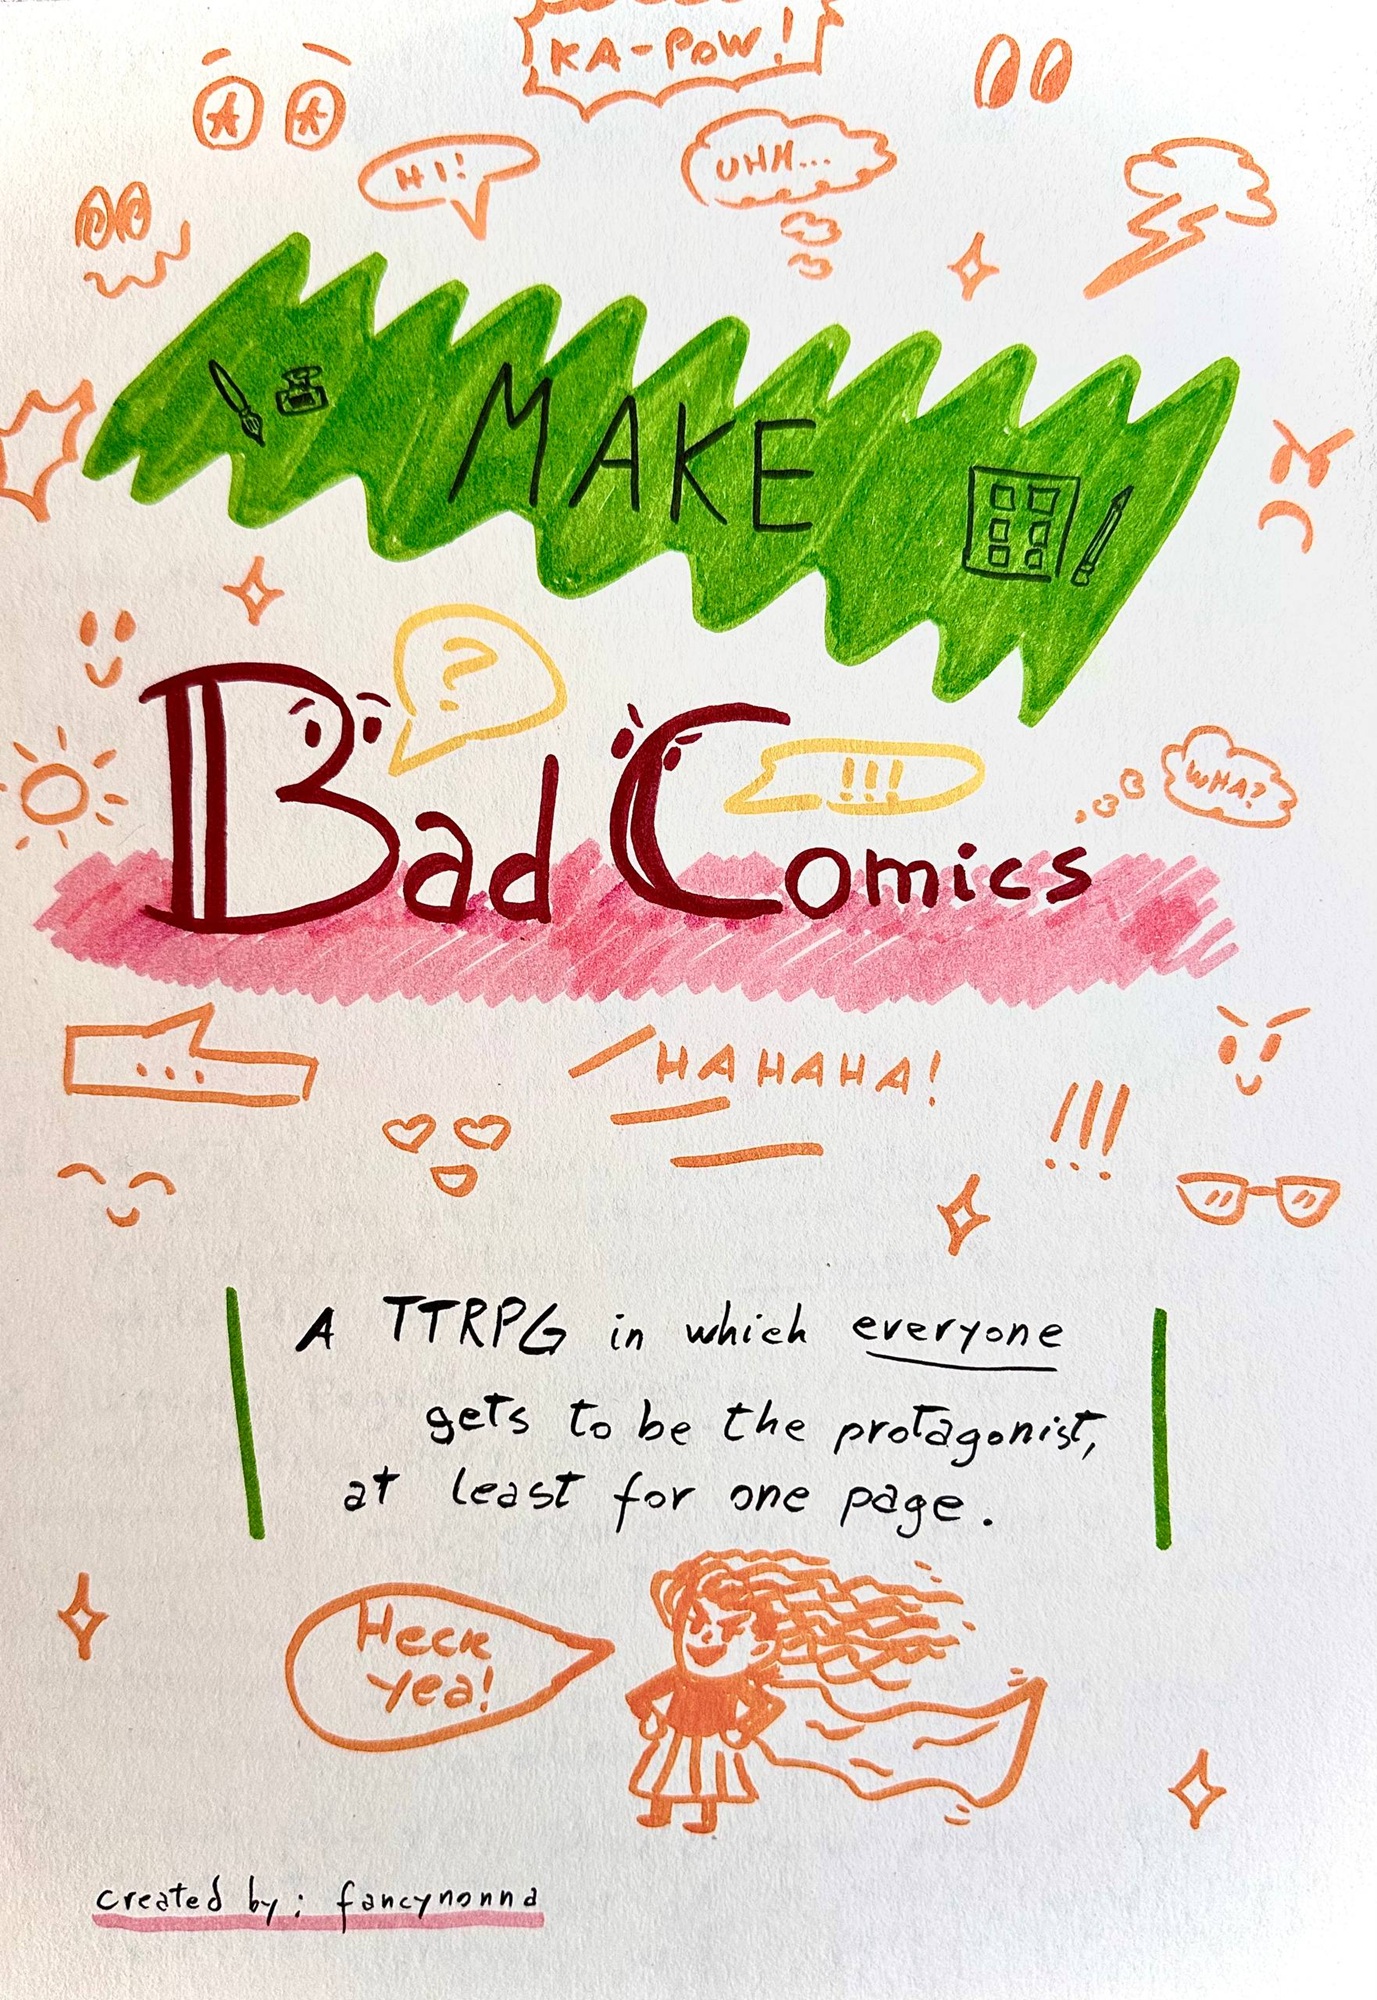 KA-POW!
HI!
UHH...
MAKE
?
Bad Comics
!!!
WHA?
...
HAHAHA!
!!!
A TTRPG in which everyone
gets to be the protagonist,
at least for one page.
Heck
yea!
created by: fancynonna